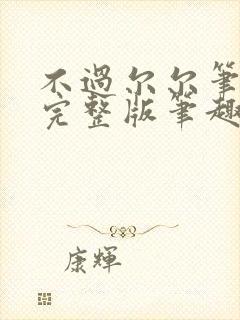 不過尔尔筆
完整版筆趣
康輝